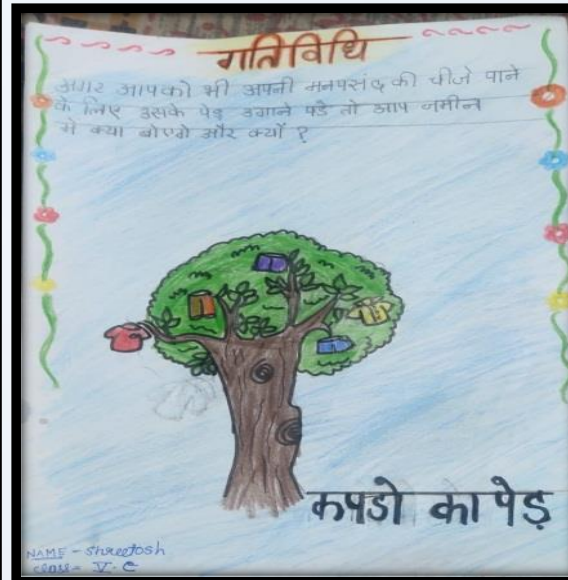 गतिविधि
अगर आपको भी अपनी मनपसंद की चीजे पाने
के लिए उसके पेड उगाने पडे तो आप जमीन
मे क्या बोएगे और क्यों ?
कपडो का पेड़
NAME - Shreetosh
class - V-C